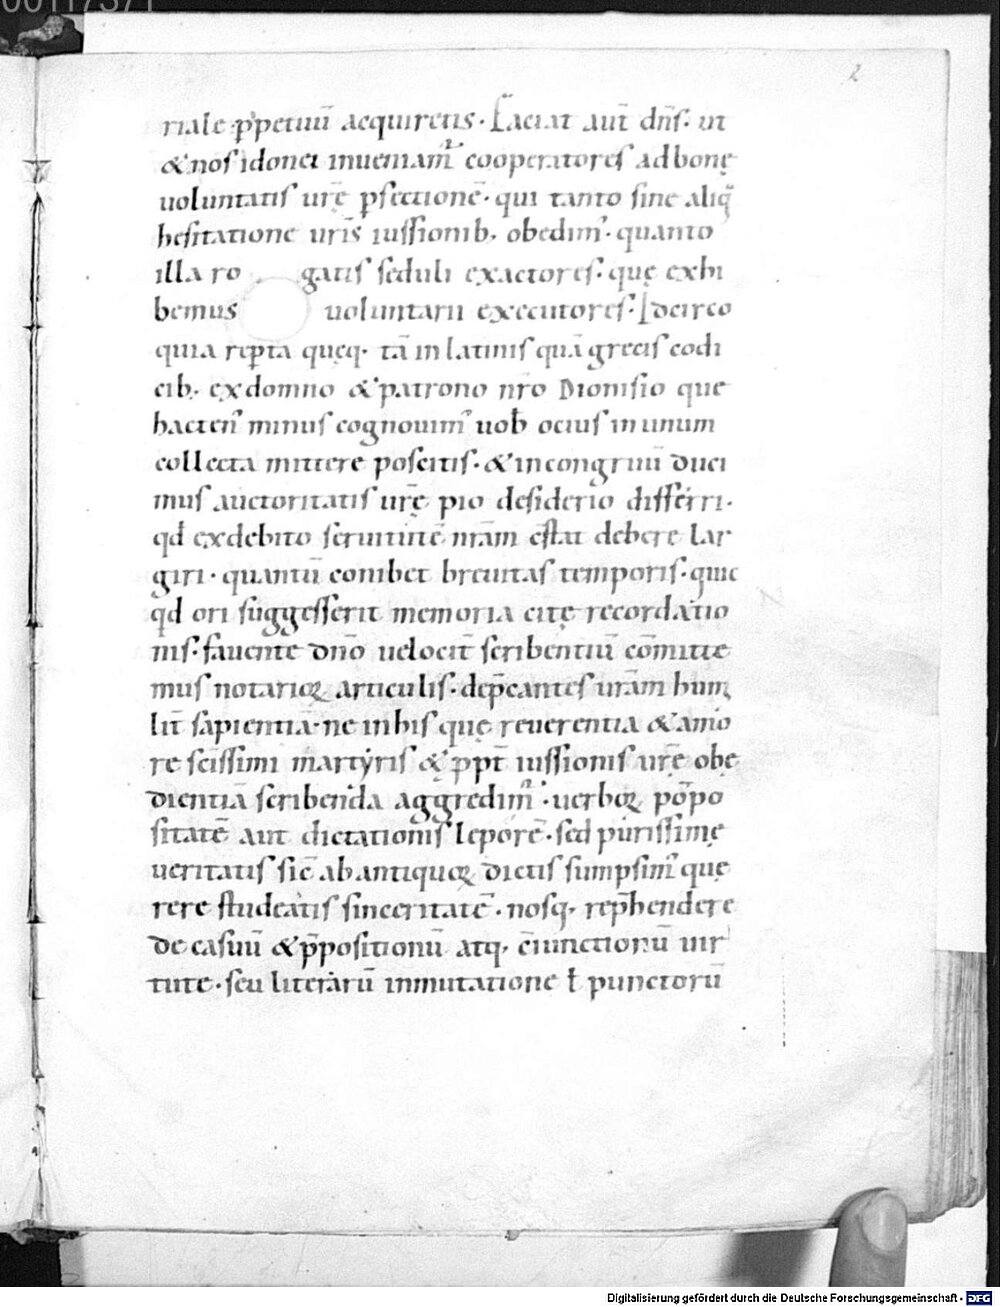 00117371
2
riale ꝑpetuũ acquiretis. Faciat aut̃ dñs. ut
& nos idonei inueniam᷒ cooperatores ad bonę
uoluntatis ur̃ę ꝑfectionẽ. qui tanto sine aliq̃
hesitatione ur̃is iussionib, obedim᷒. quanto
illa ro gatis seduli exactores. quę exhi
bemus uoluntarii executores. Idcirco
quia rep̃ta quęq. tã in latinis quã grecis codi
cib, ex domno & patrono nr̃o Dionisio que
hacten᷒ minus cognouim᷒ uob̃ ocius in unum
collecta mittere poscitis. & incongruũ duci
mus auctoritatis ur̃ę pio desiderio differri.
qđ ex debito seruitutẽ nr̃am est̃at debere lar
giri. quantũ conibet breuitas temporis. quic
qđ ori suggesserit memoria citę recordatio
nis. fauente dñо uelocit̃ scribentiũ cõmitte
mus notarioꝝ articulis. dep̃cantes ur̃am humi
lit̃ sapientiã. ne in his quę reuerentia & amo
re sc̃issimi martyris & ꝓpt̃ iussionis ur̃ę obę
dientiã scribenda aggredim᷒. uerboꝝ põpo
sitatẽ aut dictationis leporẽ. sed purissimę
ueritatis sic̃ ab antiquoꝝ dictis sumpsim᷒ quę
rere studeatis sinceritatẽ. nosq, rep̃hendere
de casuũ & p̃positionũ atq, c̃iunctionũ uir
tute. seu literarũ inmutatione ł punctorũ
Digitalisierung gefördert durch die Deutsche Forschungsgemeinschaft - DFG